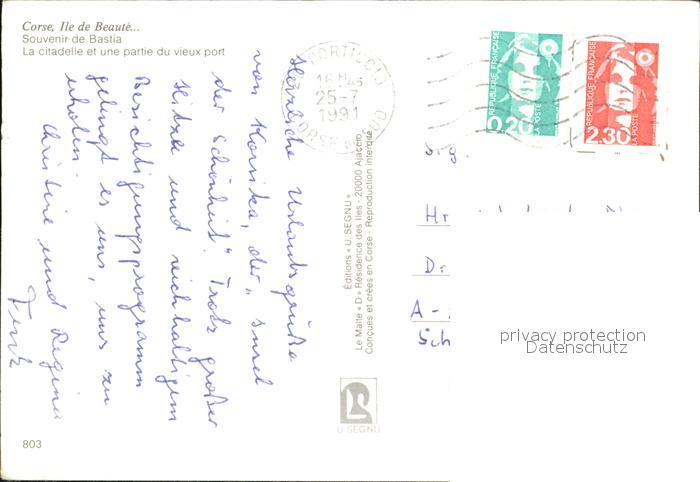 Corse, Ile de Beauté...
Souvenir de Bastia
La citadelle et une partie du vieux port
PORTICCIO
16 H45
25-7
1991
CORSE DU SUD
REPUBLIQUE FRANÇAISE
0,20
LA POSTE
REPUBLIQUE FRANÇAISE
2,30
LA POSTE
Herzliche Urlaubsgrüße
von Korsika, der „Insel
der Schönheit". Trotz großer
Hitze und reichhaltigem
Besichtigungsprogramm
gelingt es uns, uns zu
erholen.
Christine und Regina
Éditions « U SEGNU »
Le Malte « D » Résidence des Iles - 20000 Ajaccio
Conçues et créées en Corse - Reproduction interdite
H
D
A -
Sch
privacy protection
Datenschutz
U SEGNU
803